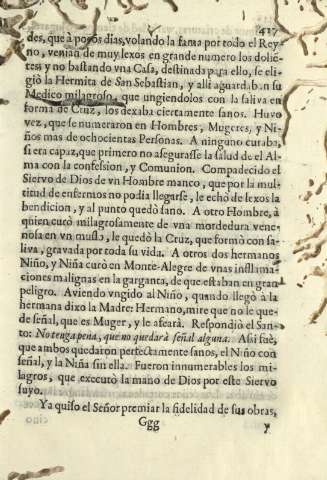 417
des, que à pocos dias, volando la fama por todo el Rey-
no, venian de muy lexos en grande numero los dolie͂-
tes y no bastando vna Casa, destinada para ello, se eli-
giò la Hermita de San Sebastian, y alli aguardaban su
Medico milagroso, que ungiendolos con la saliva en
forma de Cruz, los dexaba ciertamente sanos. Huvo
vez, que se numeraron en Hombres, Mugeres, y Ni-
ños mas de ochocientas Personas. A ninguno curaba,
si era capaz, que primero no asegurasse la salud de el Al-
ma con la confession, y Comunion. Compadecido el
Siervo de Dios de vn Hombre manco, que por la mul-
titud de enfermos no podia llegarse, le echò de lexos la
bendicion, y al punto quedò sano. A otro Hombre, à
quien curò milagrosamente de vna mordedura vene-
nosa en vn muslo, le quedò la Cruz, que formò con sa-
liva, gravada por toda su vida. A otros dos hermanos
Niño, y Niña curò en Monte-Alegre de vnas inflama-
ciones malignas en la garganta, de que estaban en gran
peligro. Aviendo vngido al Niño, quando llegò à la
hermana dixo la Madre: Hermano, mire que no le que-
de señal, que es Muger, y le afearà. Respondiò el San-
to: No tenga pena, que no quedarà señal alguna. Asi fuè,
que ambos quedaron perfectamente sanos, el Niño con
señal, y la Niña sin ella. Fueron innumerables los mi-
lagros, que executò la mano de Dios por este Siervo
suyo.
Ya quiso el Señor premiar la fidelidad de sus obras,
Ggg y